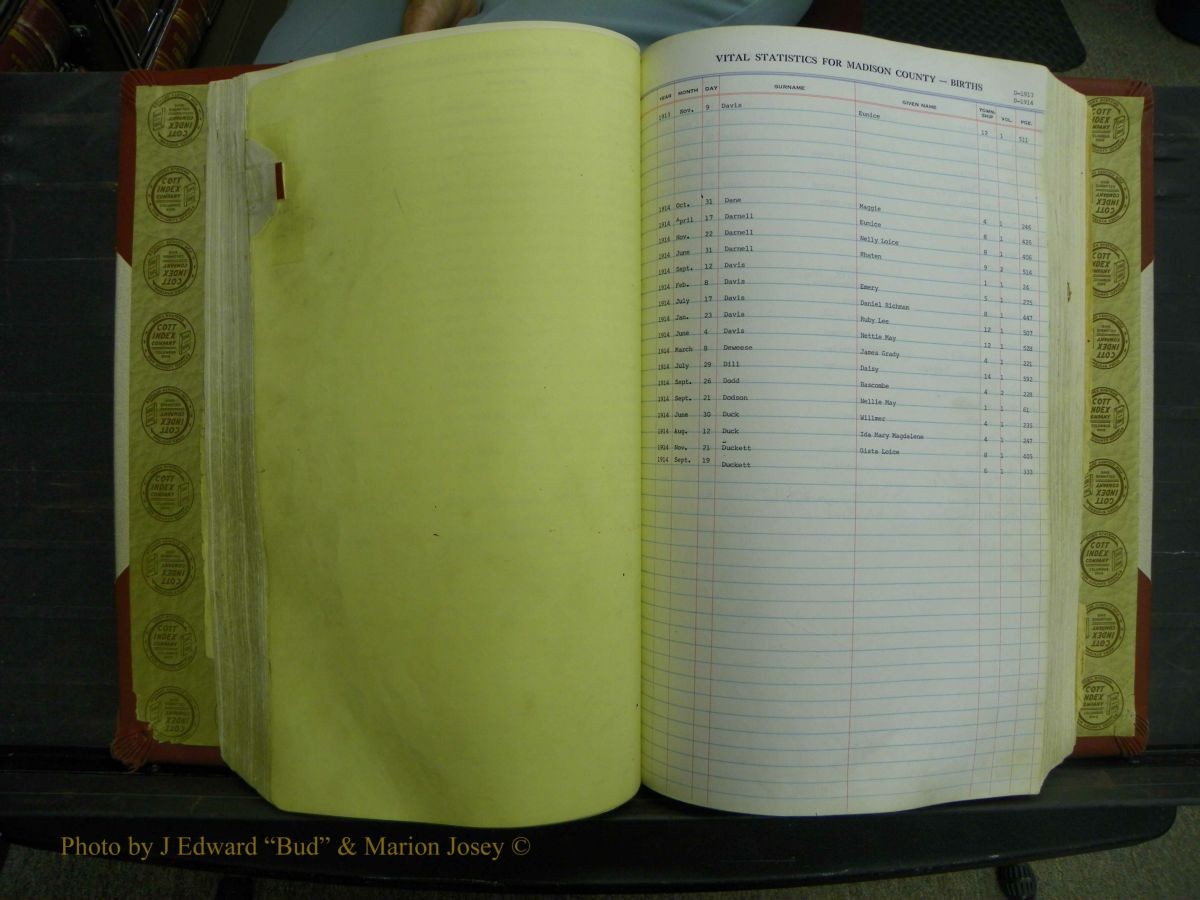 VITAL STATISTICS FOR MADISON COUNTY — BIRTHS
D-1913
D-1914
YEAR MONTH DAY SURNAME GIVEN NAME TOWN SHIP VOL. PGE.
1913 Nov. 9 Davis Eunice 12 1 511
1914 Oct. 31 Dane Maggie 4 1 246
1914 April 17 Darnell Eunice 8 1 426
1914 Nov. 22 Darnell Nelly Loice 8 1 406
1914 June 31 Darnell Rhaten 9 2 514
1914 Sept. 12 Davis 1 1 26
1914 Feb. 8 Davis Emery 5 1 275
1914 July 17 Davis Daniel Richman 8 1 447
1914 Jan. 23 Davis Ruby Lee 12 1 507
1914 June 4 Davis Nettie May 12 1 528
1914 March 8 Deweese James Grady 4 1 221
1914 July 29 Dill Daisy 14 1 592
1914 Sept. 26 Dodd Bascombe 4 2 228
1914 Sept. 21 Dodson Nellie May 1 1 61
1914 June 30 Duck Willmer 4 1 235
1914 Aug. 12 Duck Ida Mary Magdalene 4 1 247
1914 Nov. 21 Duckett Gista Loice 8 1 405
1914 Sept. 19 Duckett 6 1 333
COTT INDEX COMPANY
Photo by J Edward “Bud” & Marion Josey ©